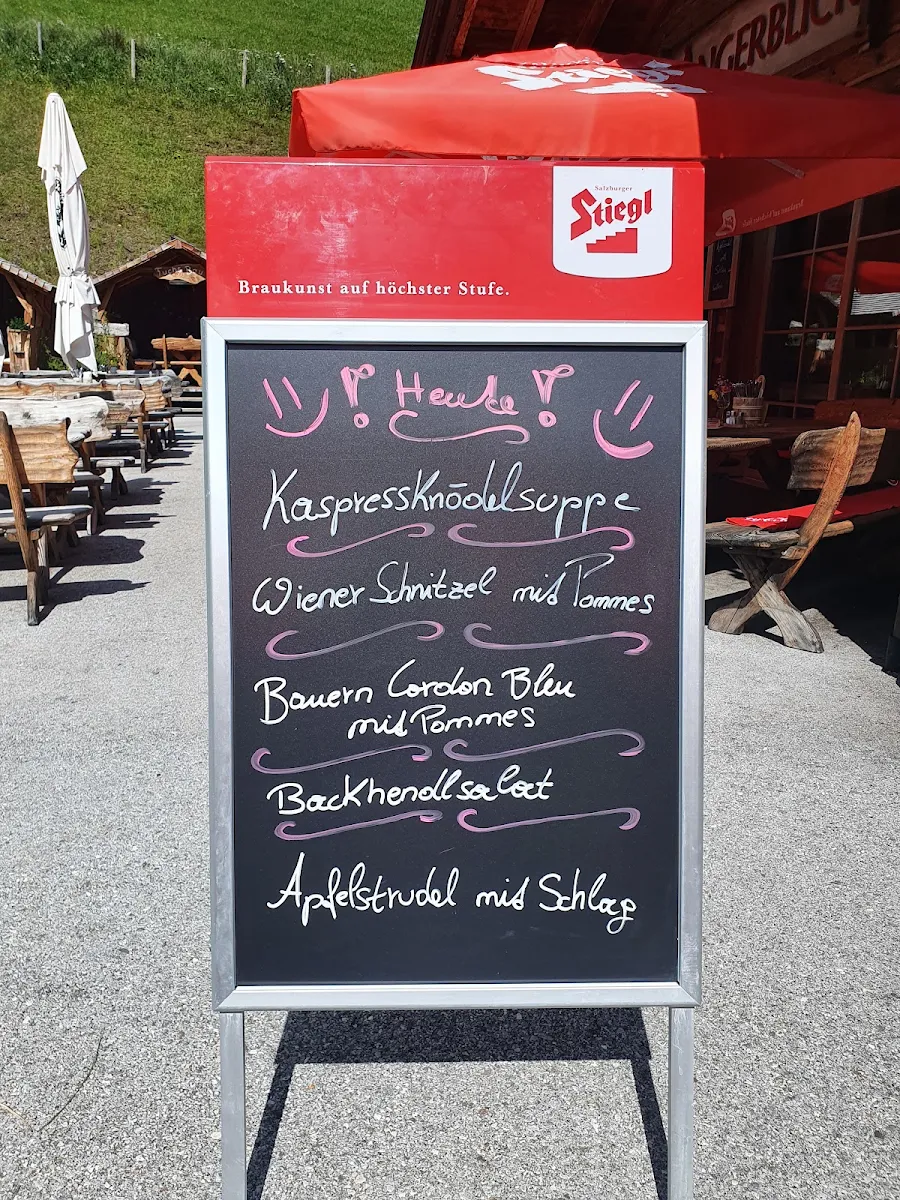 Salzburger
Stiegl
Braukunst auf höchster Stufe.
! Heute !
Kaspressknödelsuppe
Wiener Schnitzel mit Pommes
Bauern Cordon Bleu
mit Pommes
Backhendlsalat
Apfelstrudel mit Schlag